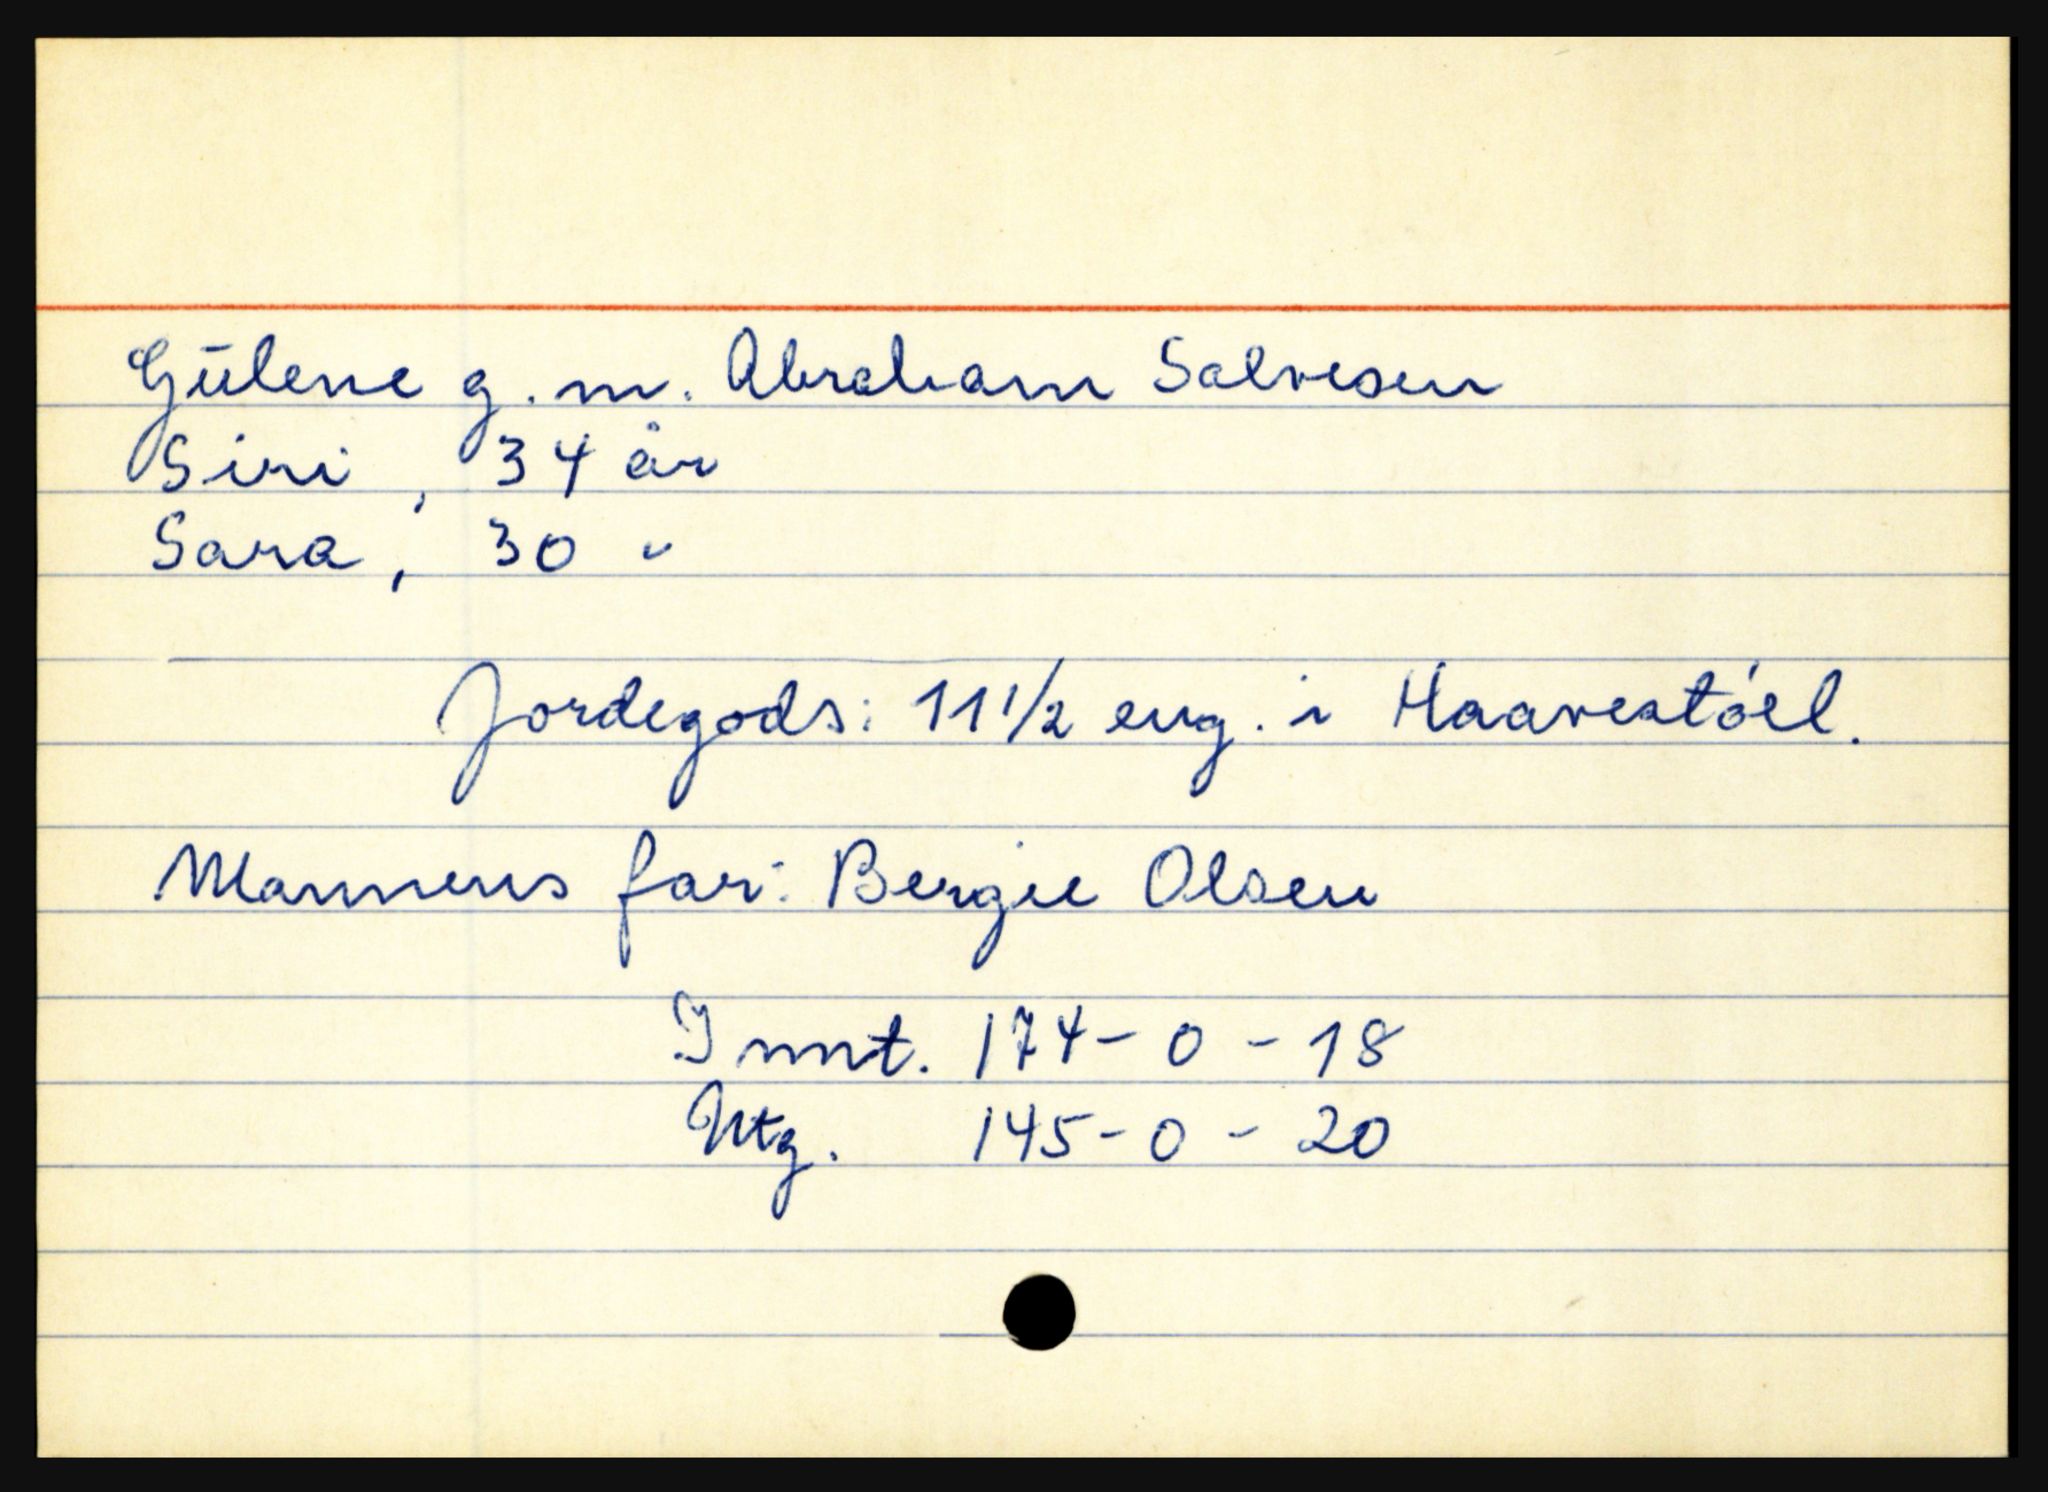 Gülene g.m. Abraham Salvesen
Siri, 34 år
Sara, 30 "
Jordegods: 11 1/2 eng. i Haavestóel.
Mannens far: Bergie Olsen
Innt. 174 - 0 - 18
Utg. 145 - 0 - 20